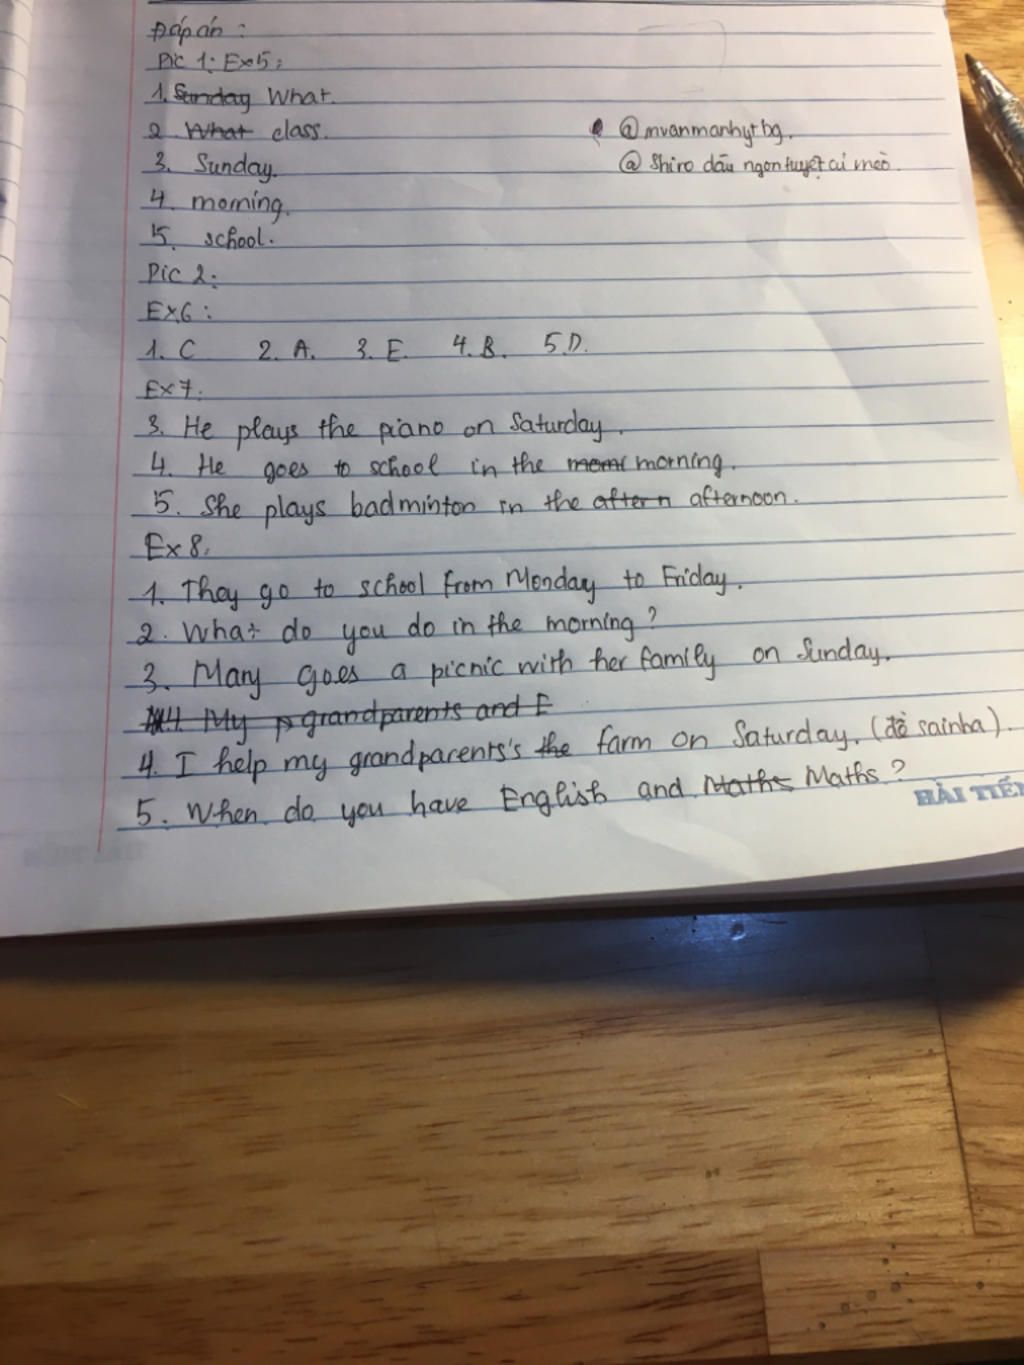 Đáp án :
Pic 1: Ex5:
1. Sunday What.
2. What class.
@mvanmanhytbg.
3. Sunday.
@Shiro dấu ngon tuyệt cú mèo.
4. morning.
5. school.
Pic 2:
Ex6 :
1. C 2. A. 3. E. 4. B. 5. D.
Ex7.
3. He plays the piano on Saturday.
4. He goes to school in the morni morning.
5. She plays badminton in the aftern afternoon.
Ex 8.
1. They go to school from Monday to Friday.
2. What do you do in the morning?
3. Mary goes a picnic with her family on Sunday.
4. My p grandparents and E
4. I help my grandparents's the farm on Saturday. (đề sai nha).
5. When do you have English and Maths Maths?
HẢI TIẾN